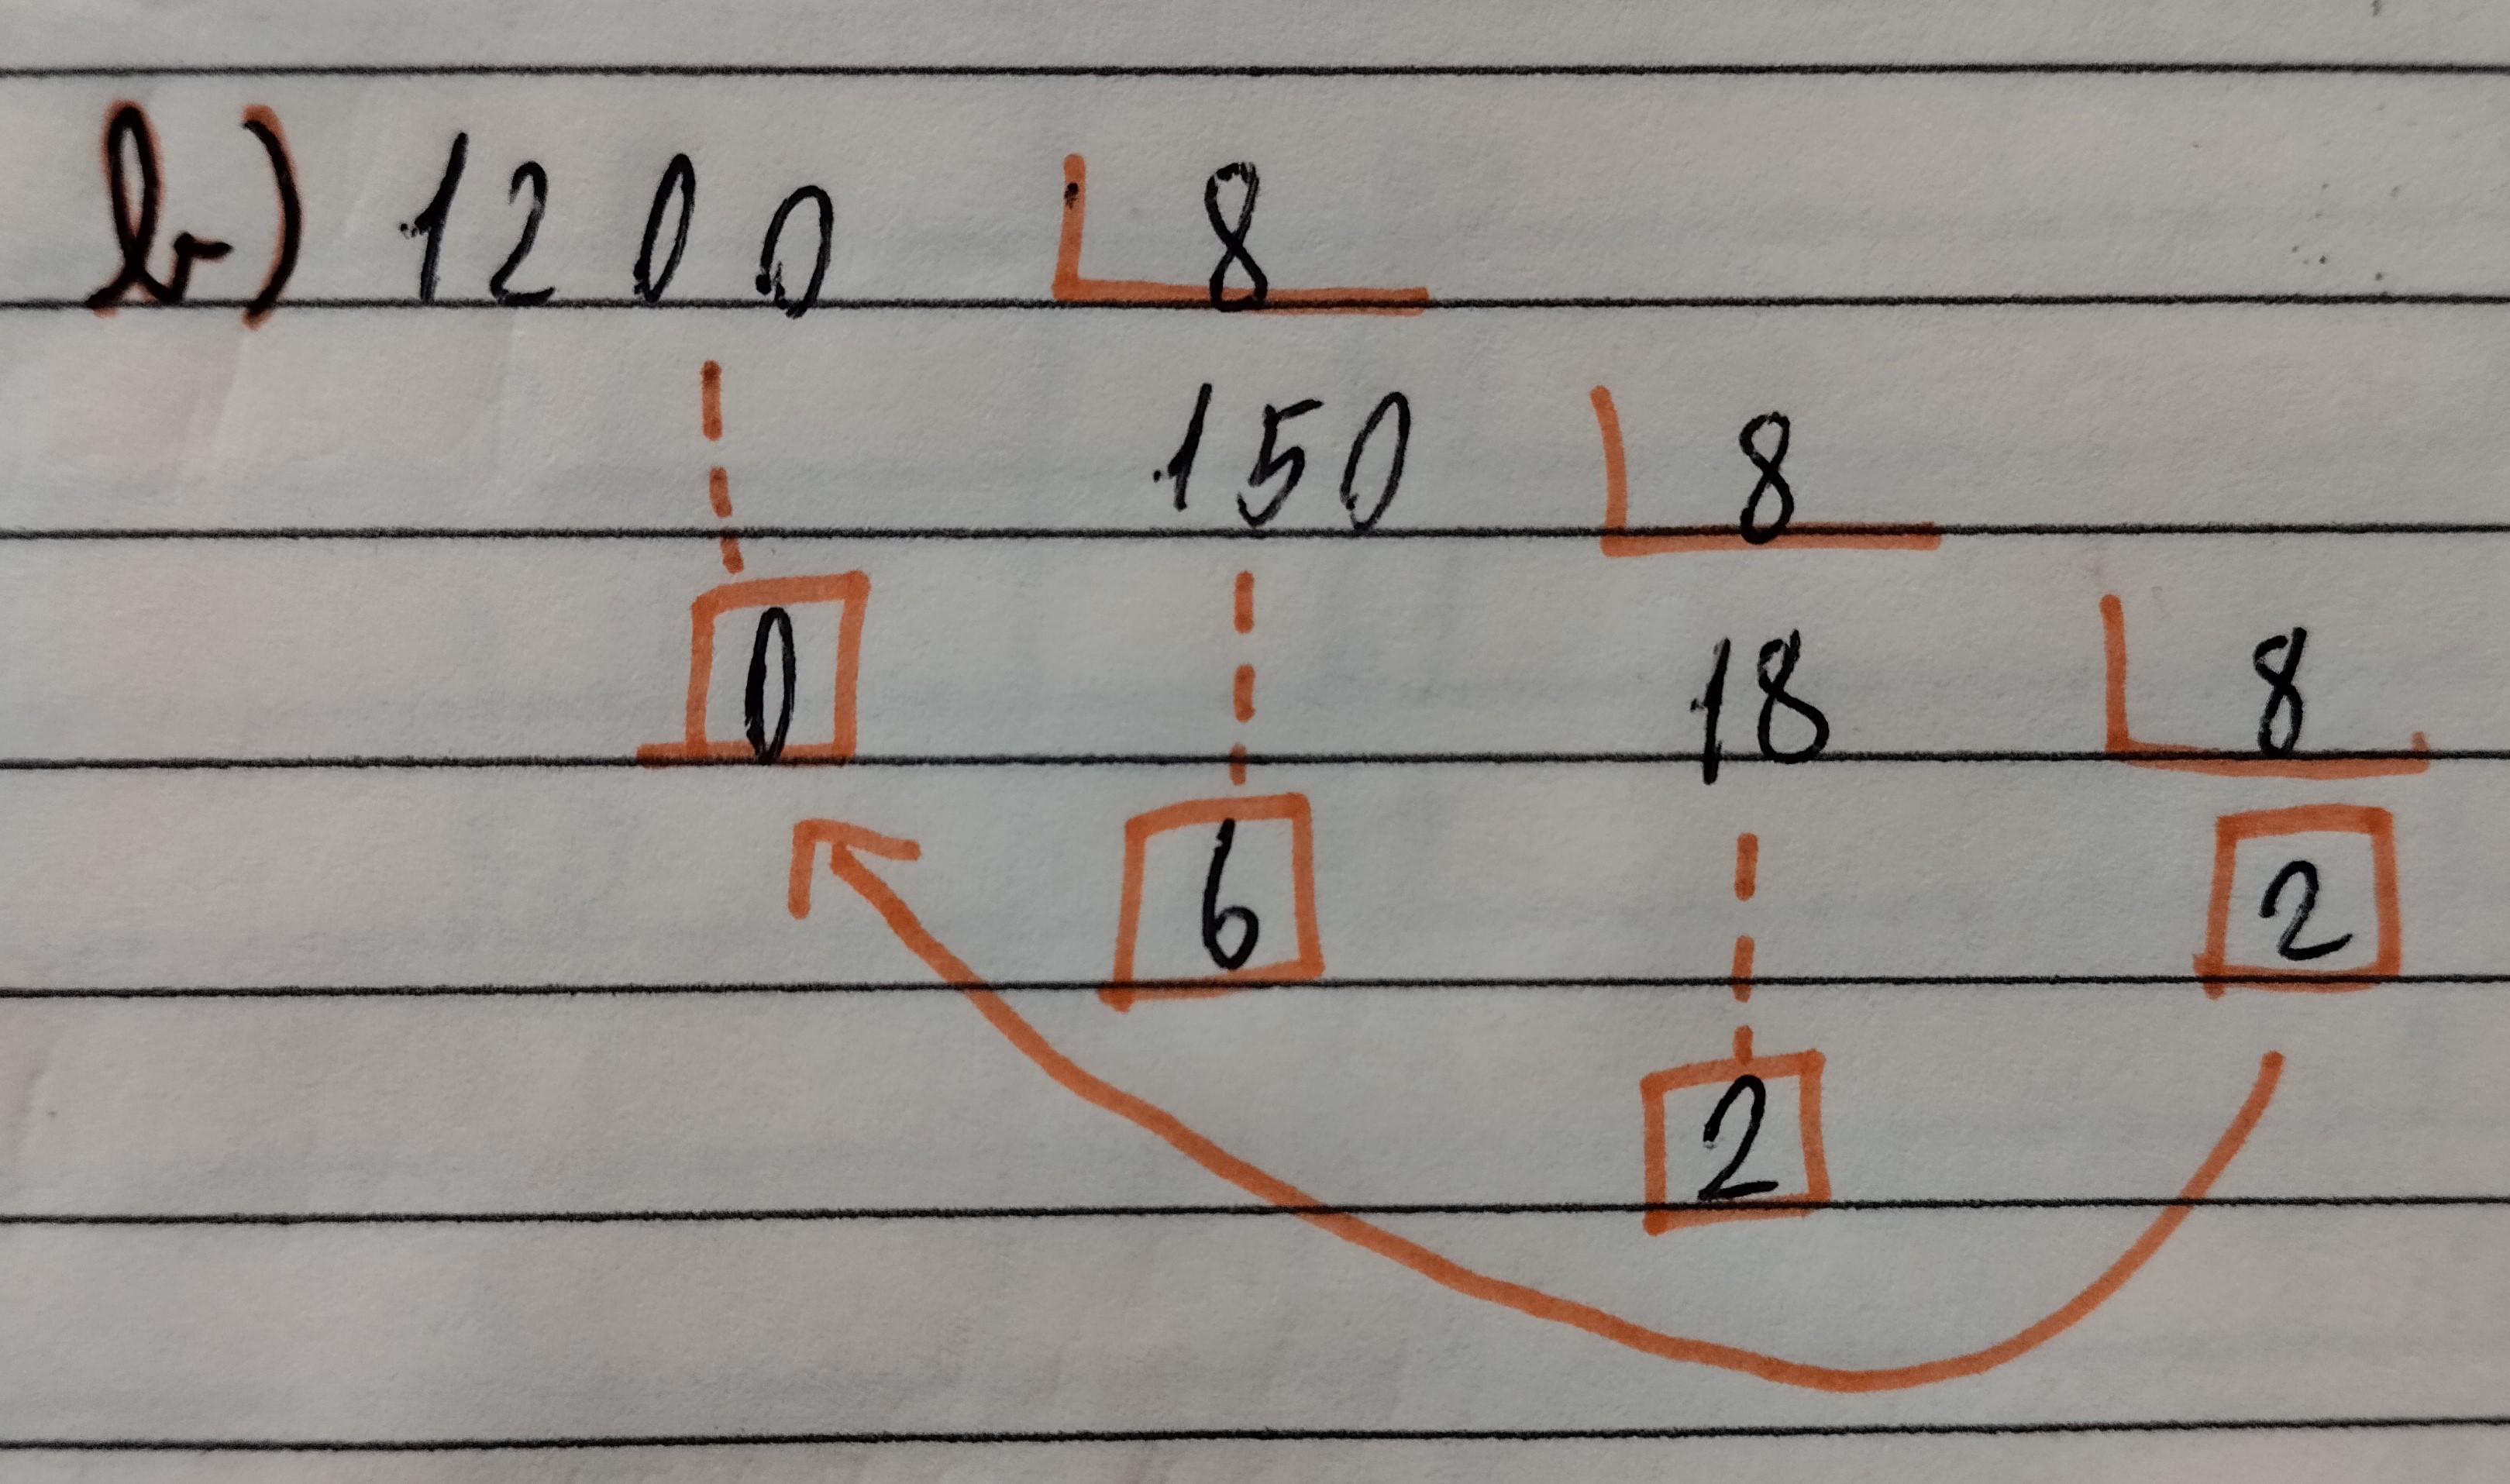 b) 1200 8
150 8
0 18 8
6 2
2